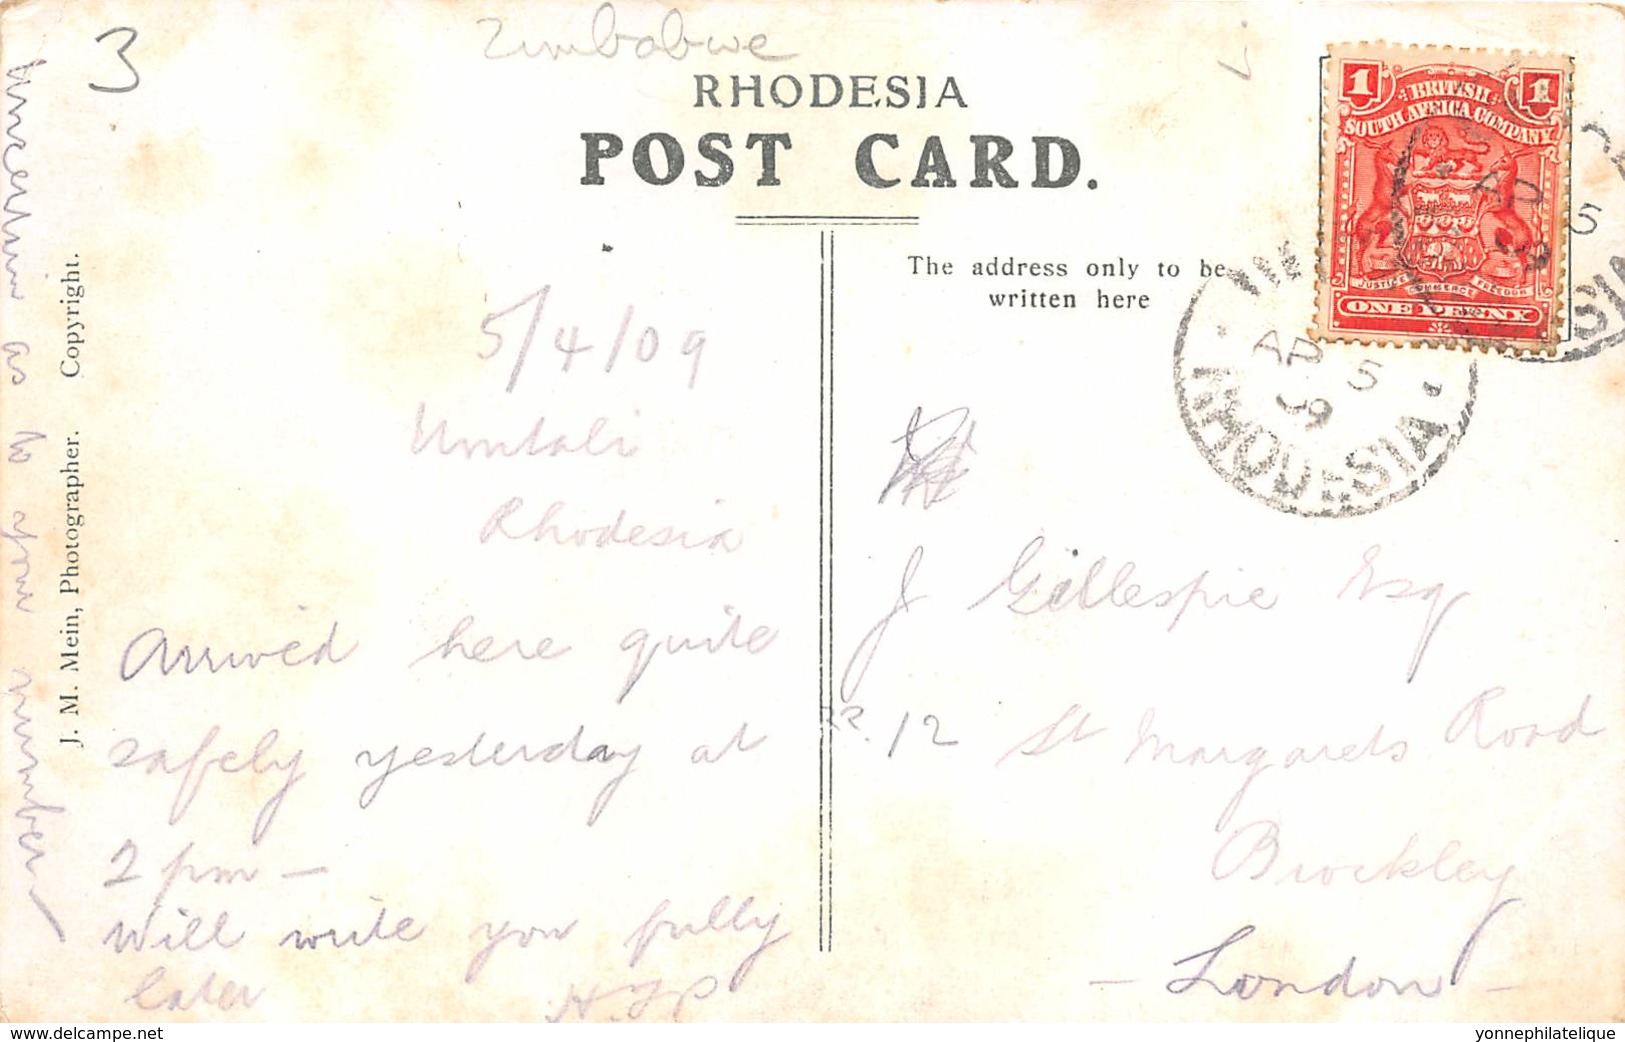 3
Zimbabwe
RHODESIA
POST CARD.
The address only to be
written here
1 1
BRITISH
SOUTH AFRICA COMPANY
JUSTICE COMMERCE FREEDOM
ONE PENNY
AP 5
09
RHODESIA
AP 5
09
5/4/09
Umtali
Rhodesia
Arrived here quite
safely yesterday at
2 pm —
Will write you fully
later
uncertain as to your number
J. M. Mein, Photographer. Copyright.
J Gillespie Esq
12 St Margarets Road
Brockley
— London —
delcampe.net
yonnephilatelique